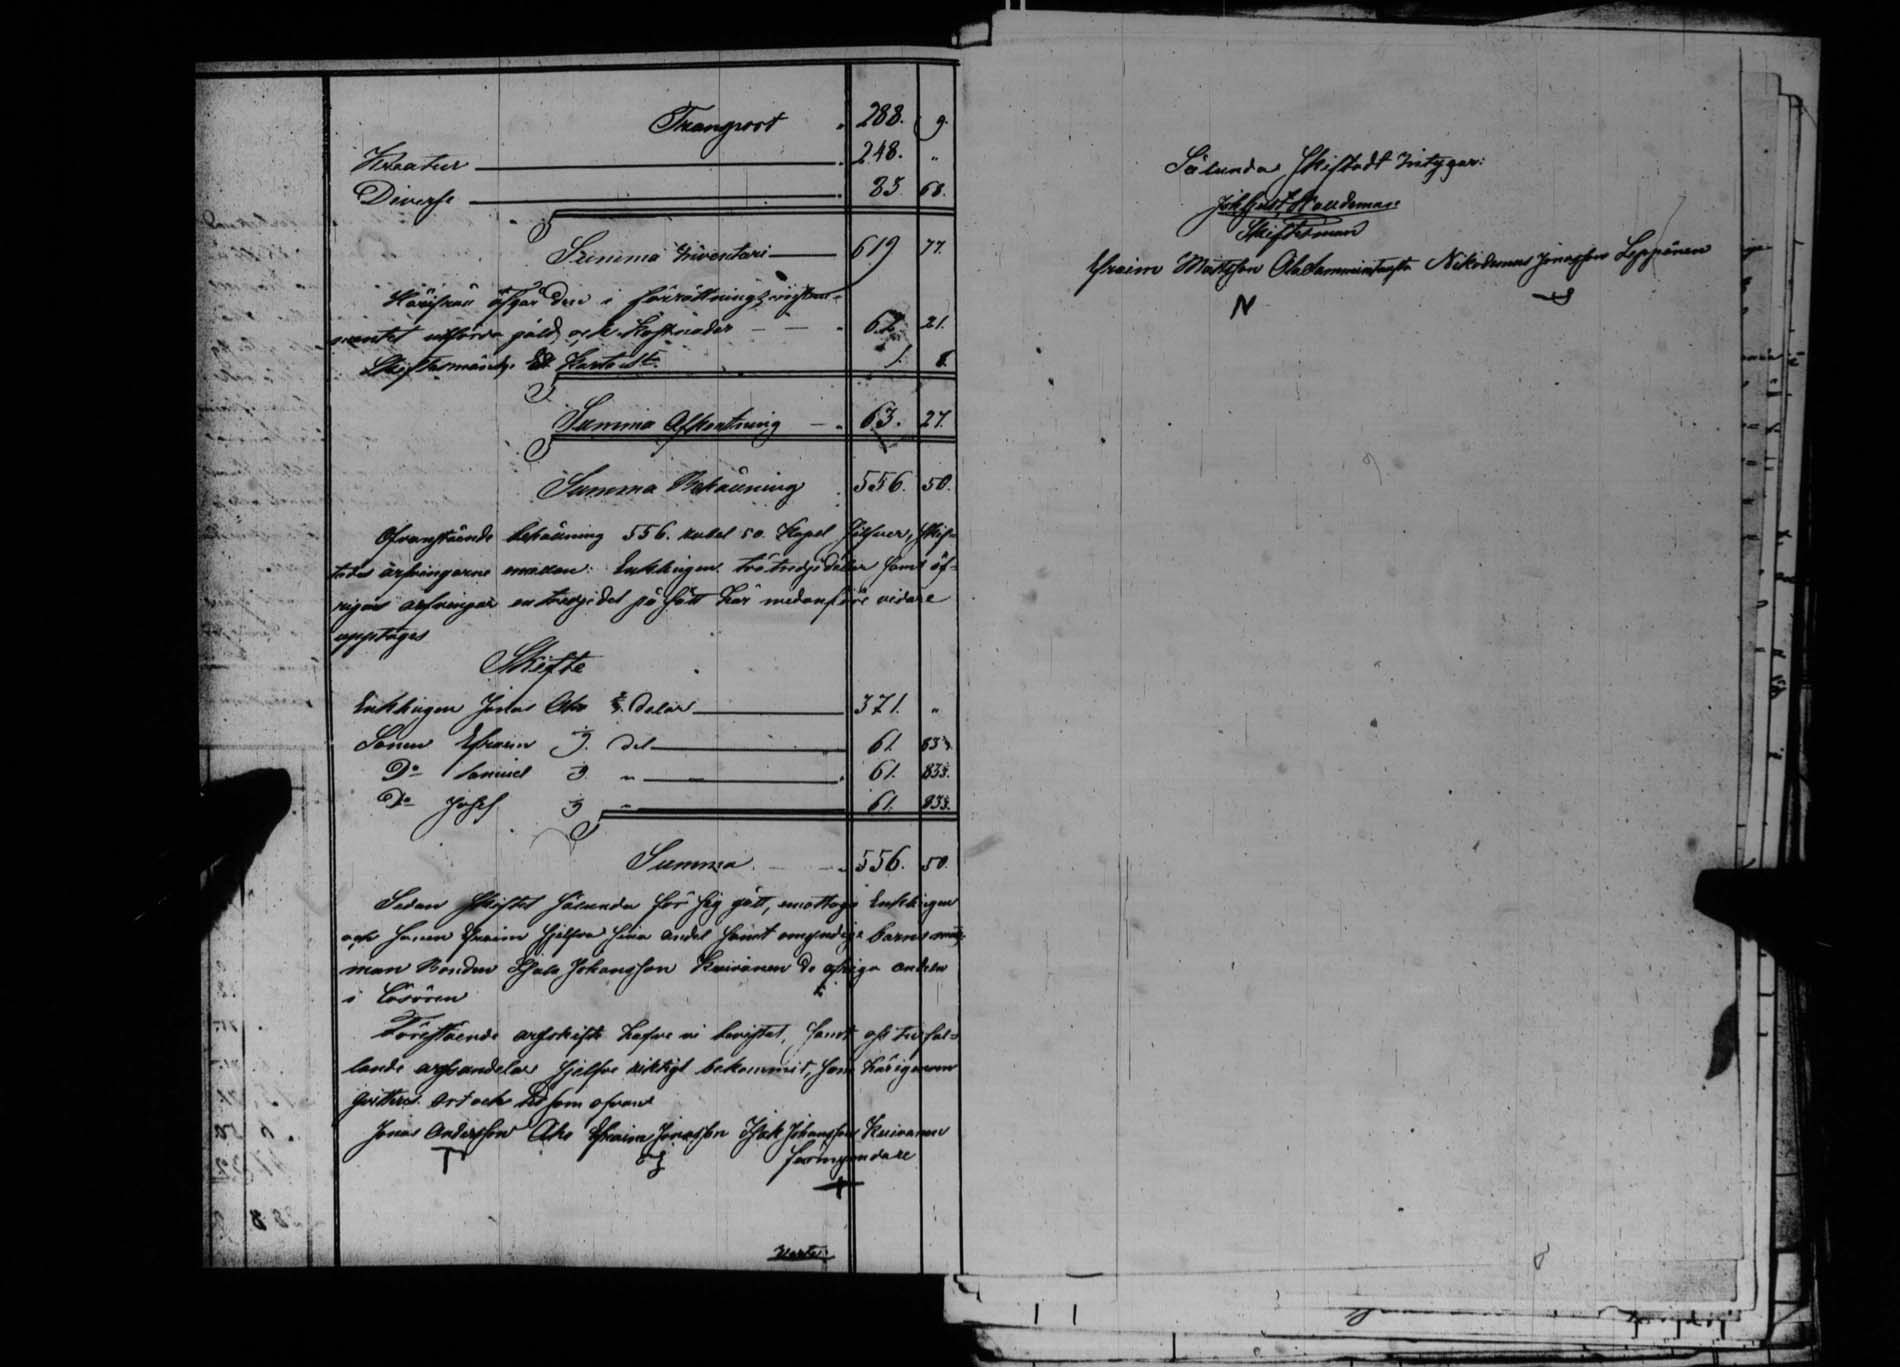 Transport " 288. 9.
Kreatur " 248. "
Diverse " 83. 68.
Summa Inventari 619 77.
Härifrån afgår den i förrättnings instru-
mentet utförda gäld och kostnader " 62. 21.
Skiftesmans 1. 6.
Summa Afkortning " 63. 27.
Summa Behållning 556. 50.
Ofvanstående behållning 556. rubel 50. Kopek Silfver, skif-
tades arfvingarne emellan: Enklingen två tredjedelar samt öf-
rigas arfvingar en tredjedel på sätt här nedanföre vidare
upptages
Skifte
Enklingen Jonas Aho ⅔ delar 371. "
Sonen Efraim del 61. 83⅓.
Do Samuel " 61. 83⅓.
Do Josef " 61. 83⅓.
Summa 556. 50.
Sedan skiftet sålunda för sig gått, emottogo Enklingen
och sonen Efraim sjelfva sina andel samt omyndige barnens
man Bonden Johansson Kuivanen de öfriga andelar
i lösören
Föreståande arfskifte hafve vi bevistat, samt oss till fal-
lande arfsandelar sjelfve riktigt bekommit, som härigenom
qvitteras. Ort och tid som ofvan
Jonas Andersson Aho Efraim Jonasson Isak Johansson Kuivanen
T förmyndare
+
Verte
Sålunda Skiftadt Intygar:
Joh Gust
Skiftesman
Efraim Mattsson Nikodemus Jonasson Leppänen
N